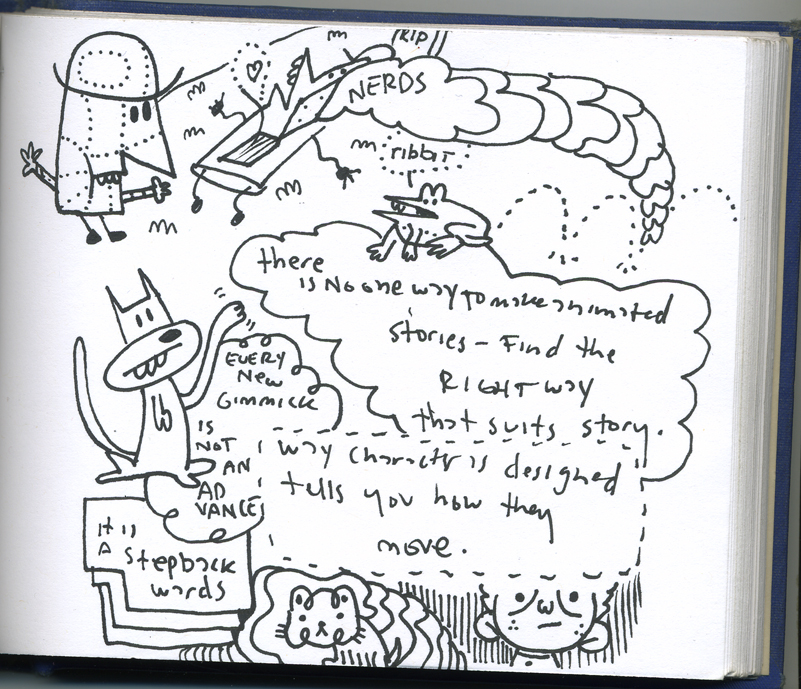 RIP
NERDS
ribbit
there
is No one way to make animated
stories - Find the
RIGHT way
that suits story.
EVERY
New
Gimmick
IS
NOT
AN
AD
VANCE
way charactr is designed
tells you how they
move.
it is
A Stepback
words